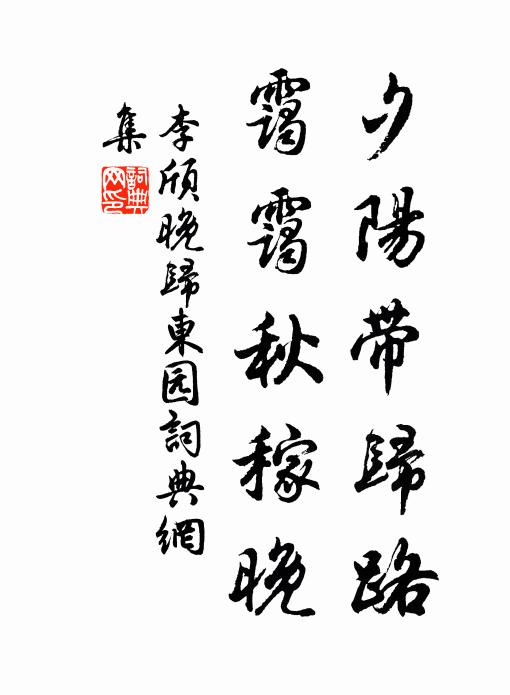 夕陽帶歸路
靄靄秋稼晚
李頎晚歸東园詞典網
集
詞典
网印